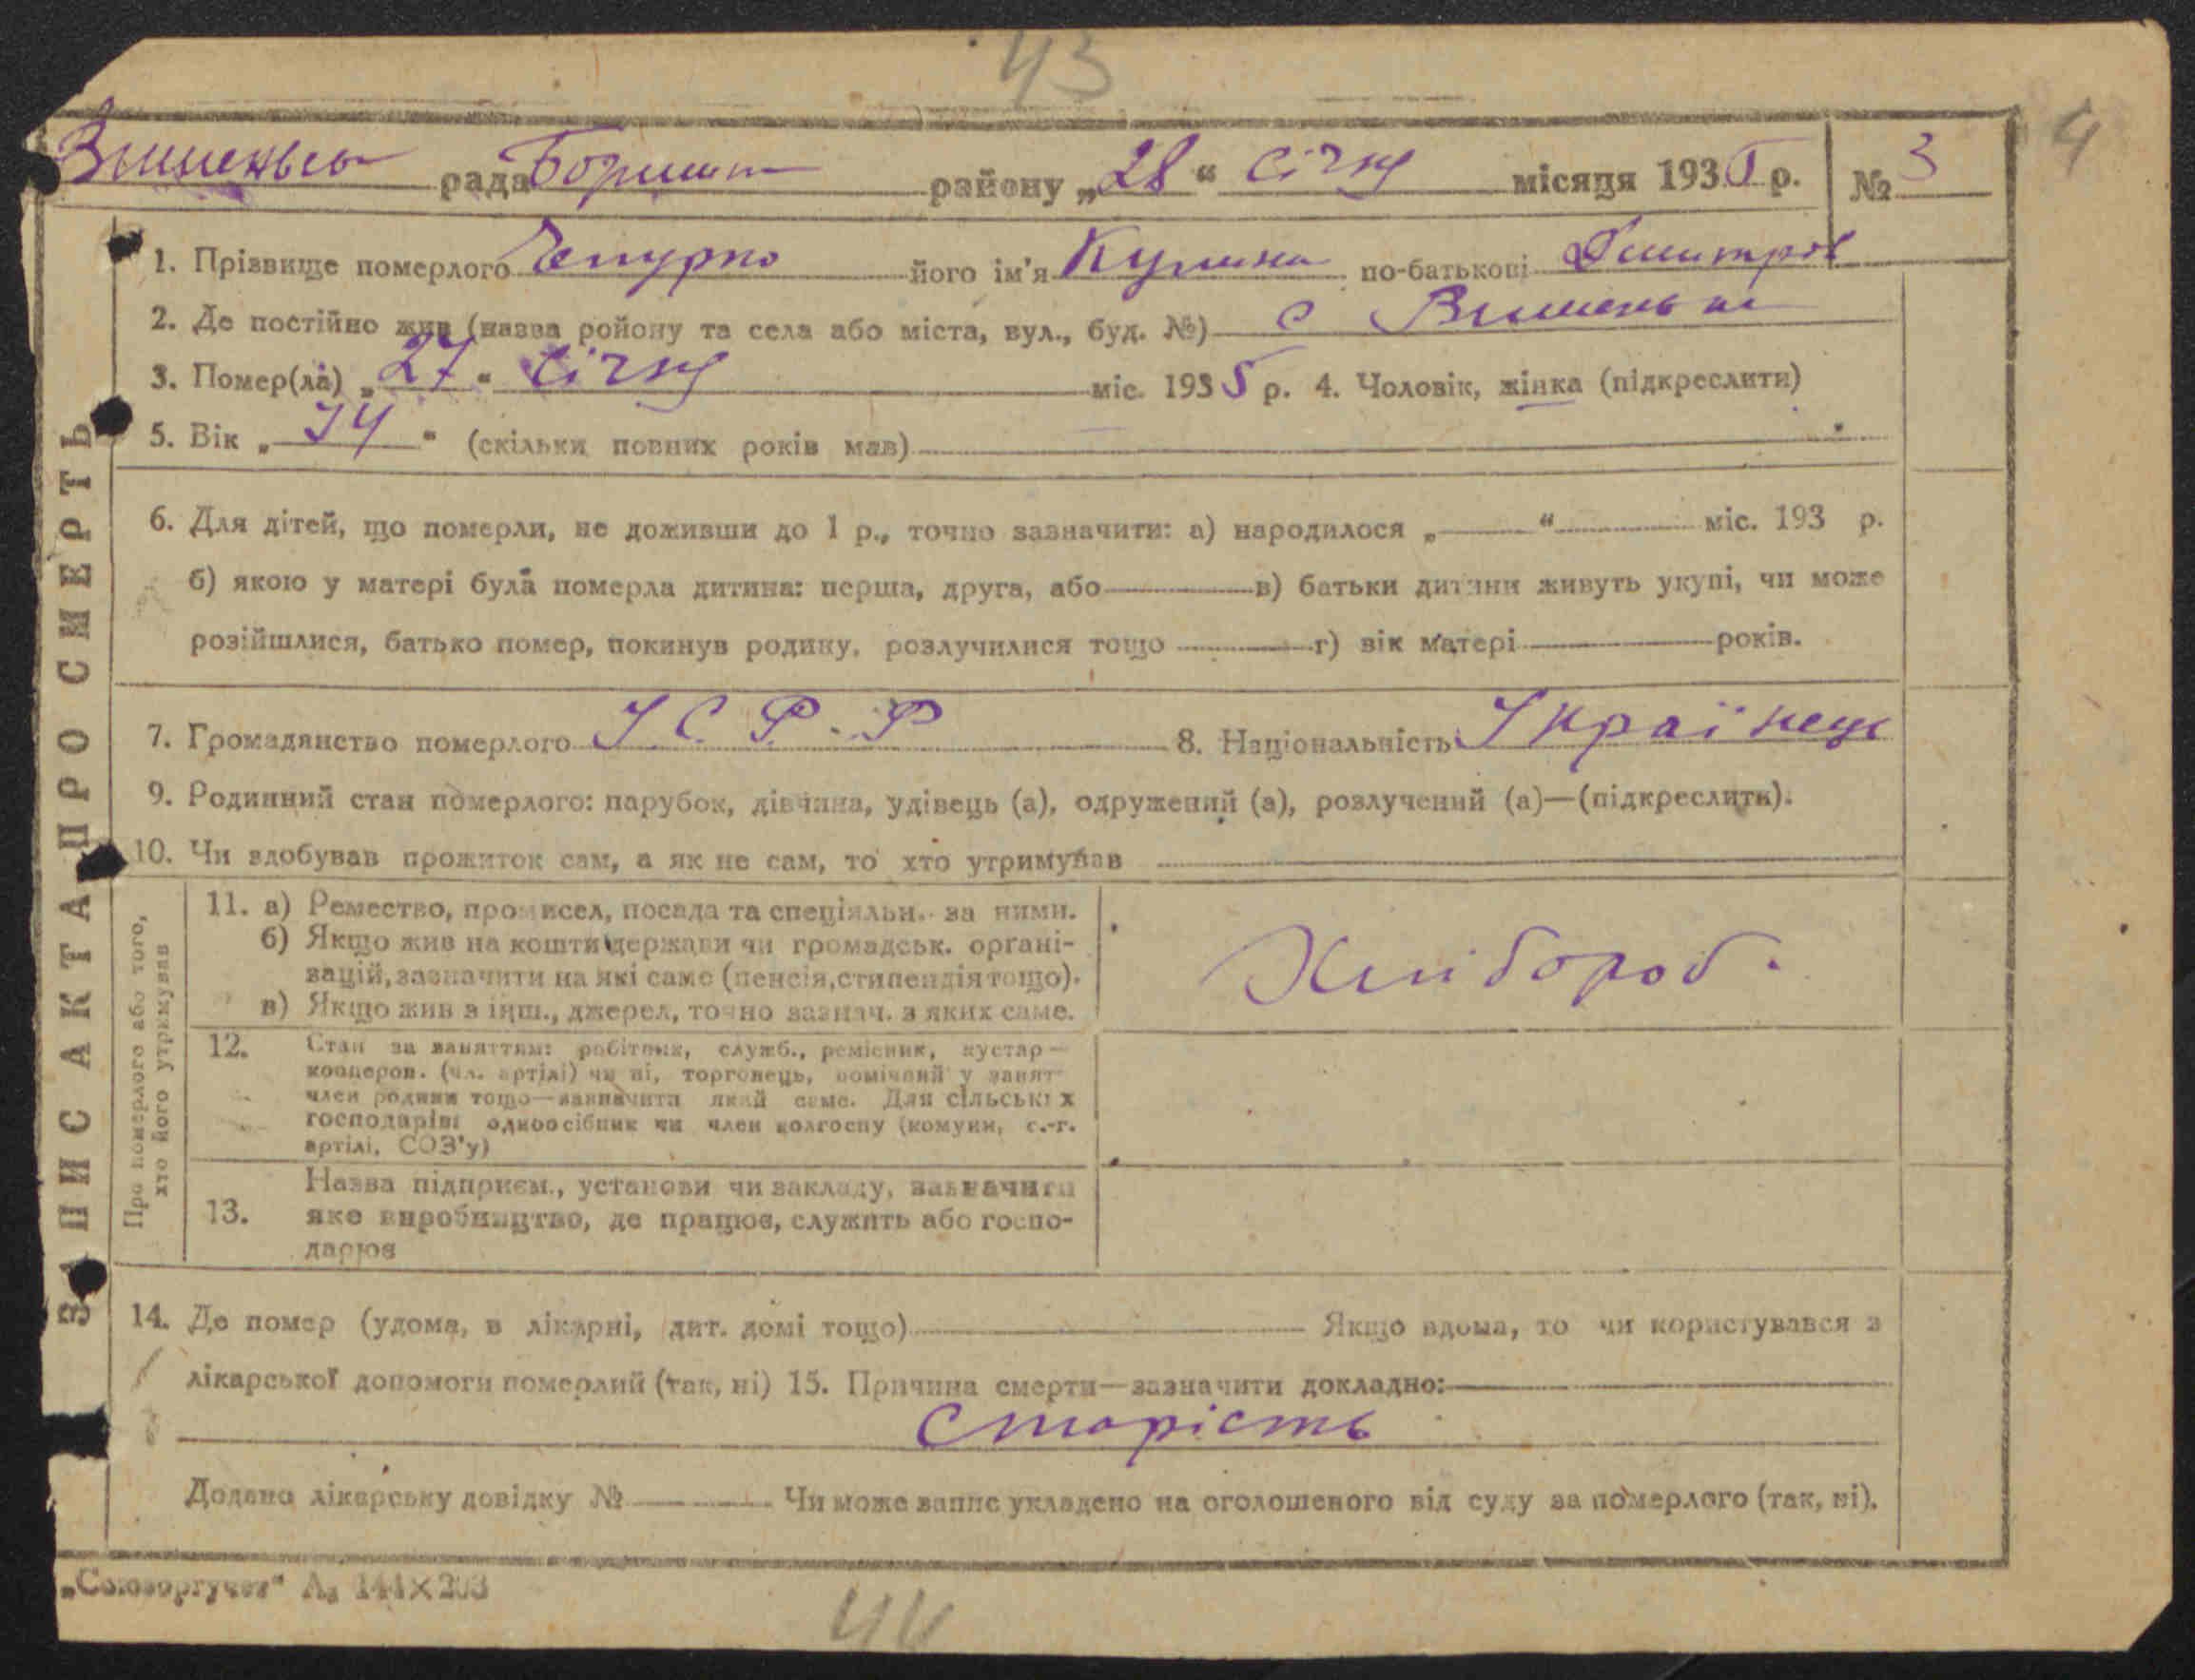 43
4
Вишеньсь рада Бориш району „28“ січня місяця 1935 р. № 3
1. Прізвище померлого Чепурно його ім'я Кулина по-батькові Дмитров
2. Де постійно жив (назва ройону та села або міста, вул., буд. №) с Вишеньки
3. Помер(ла) „27“ січня міс. 1935 р. 4. Чоловік, жінка (підкреслити)
5. Вік „74“ (скільки повних років мав)
6. Для дітей, що померли, не доживши до 1 р., точно зазначити: а) народилося „ “ міс. 193 р.
б) якою у матері була померла дитина: перша, друга, або в) батьки дитини живуть укупі, чи може
розійшлися, батько помер, покинув родину, розлучилися тощо г) вік матері років.
7. Громадянство померлого У. С. Р. Р 8. Національність Українець
9. Родинний стан померлого: парубок, дівчина, удівець (а), одружений (а), розлучений (а)—(підкреслити).
10. Чи здобував прожиток сам, а як не сам, то хто утримував
ЗАПИС АКТА ПРО СМЕРТЬ
Про померлого або того,
хто його утримував
11. а) Ремество, промисел, посада та спеціяльн. за ними.
б) Якщо жив на кошти держави чи громадськ. органі-
зацій, зазначити на які саме (пенсія, стипендія тощо).
в) Якщо жив з інш., джерел, точно зазнач. з яких саме.
Хлібороб.
12. Стан за заняттям: робітник, служб., ремісник, кустар—
кооперов. (чл. артілі) чи ні, торговець, помічний у занят
член родини тощо—зазначити який саме. Для сільських
господарів: одноосібник чи член колгоспу (комуни, с.-г.
артілі, СОЗ'у)
13. Назва підприєм., установи чи закладу, зазначити
яке виробництво, де працює, служить або госпо-
дарює
14. Де помер (удома, в лікарні, дит. домі тощо) Якщо вдома, то чи користувався з
лікарської допомоги померлий (так, ні) 15. Причина смерти—зазначити докладно:
старість
Додано лікарську довідку № Чи може запис укладено на оголошеного від суду за померлого (так, ні).
„Союзоргучет“ А₅ 144×203
44